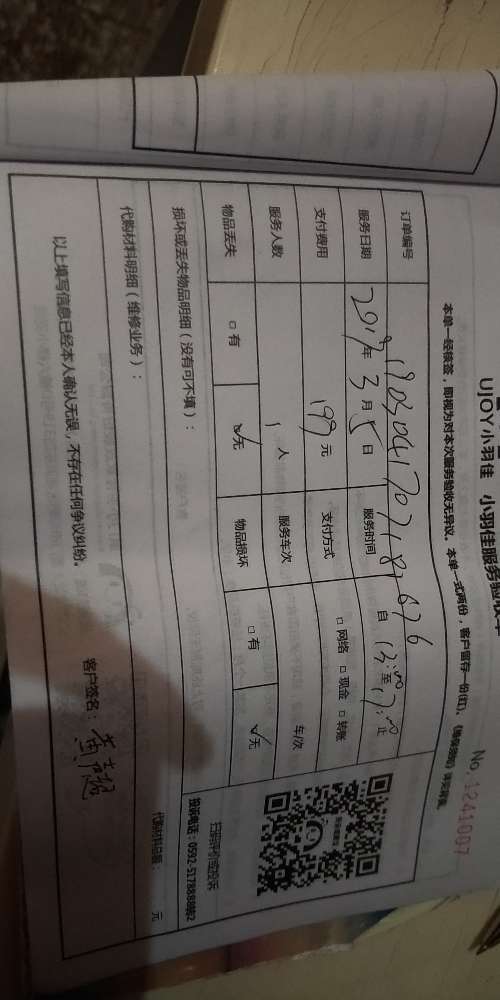 UJOY小羽佳 小羽佳服务验收单
No.1241007
本单一经核签，即视为对本次服务验收无异议，本单一式两份，客户留存一份(红)。
订单编号 19030417071187676
服务日期 2019年3月5日 服务时间 自13:00至17:00止
支付费用 199元 支付方式 □网络 □现金 □转账
服务人数 1人 服务车次 车/次
物品丢失 □有 ☑无 物品损坏 □有 ☑无
扫码评价或投诉
投诉电话：0592-5178888转2
损坏或丢失物品明细（没有可不填）：
代购材料明细（维修业务）： 代购材料总额： 元
以上填写信息已经本人确认无误，不存在任何争议纠纷。
客户签名：